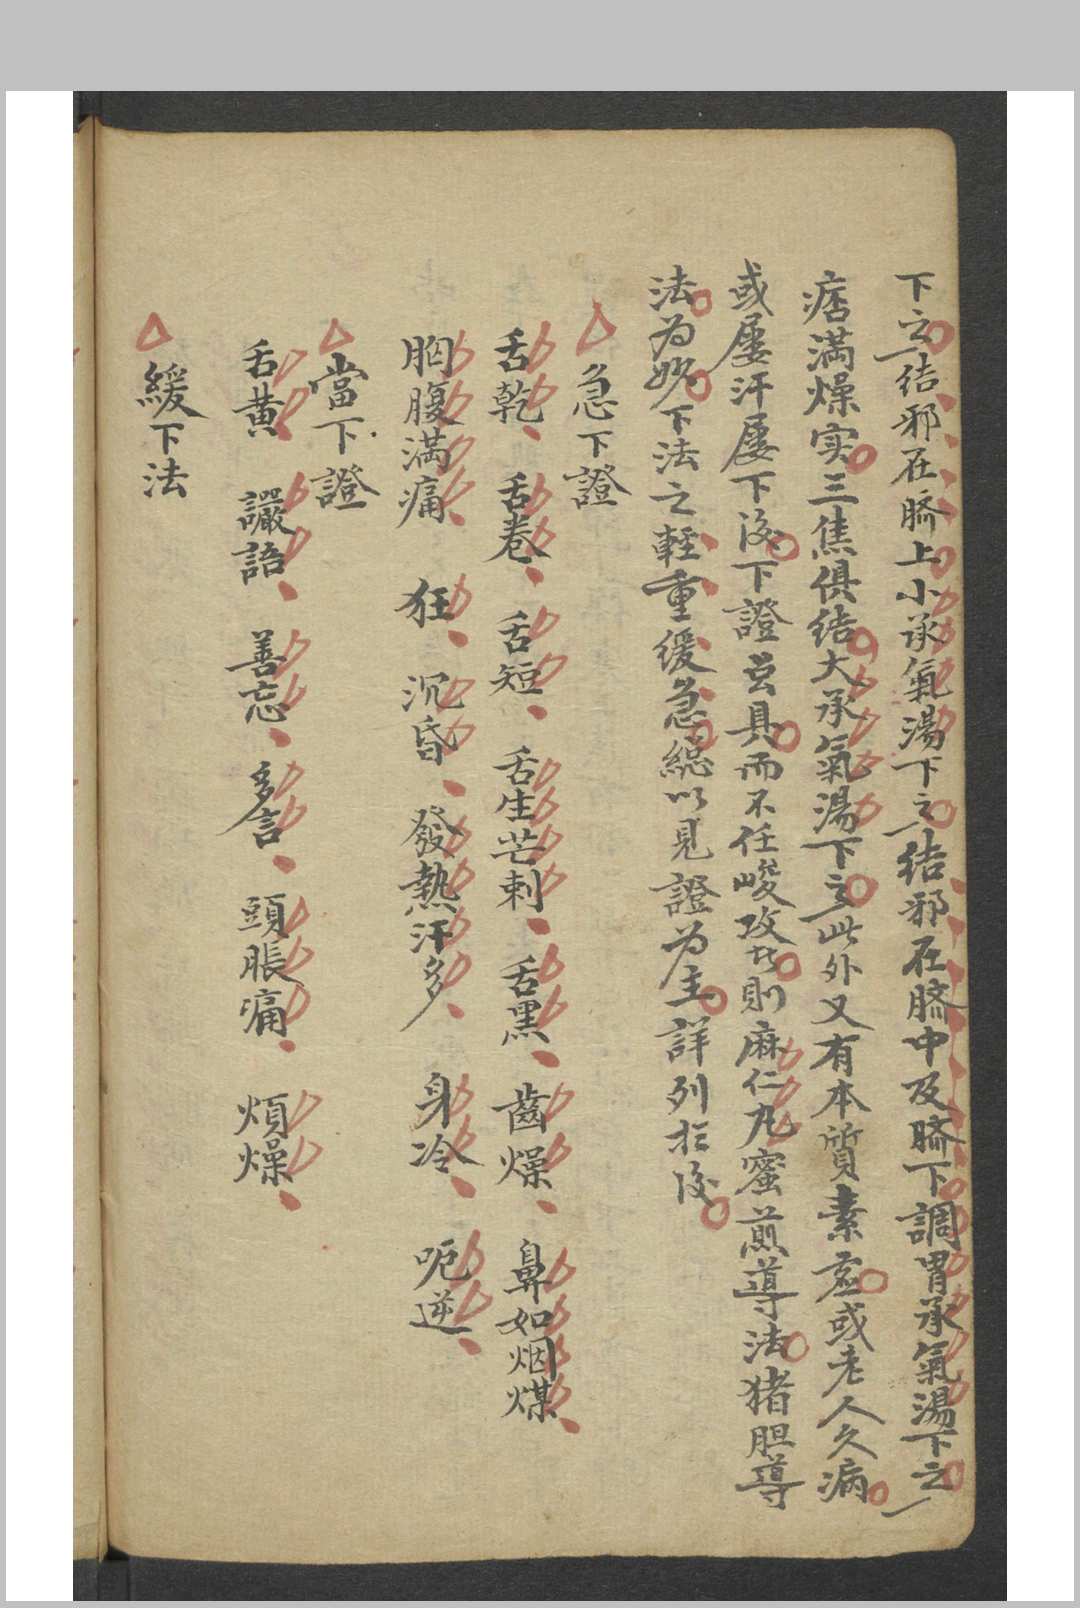 下之結邪在臍上小承氣湯下之結邪在臍中及臍下調胃承氣湯下之
痞満燥实三焦俱結大承氣湯下之此外又有本質素虛或老人久病
或屡汗屡下後下證具而不任峻攻此則麻仁丸蜜煎導法猪胆導
法为妙下法之輕重緩急總以見證为主詳列於後
急下證
舌乾 舌卷 舌短 舌生芒刺 舌黑 齒燥 鼻如烟煤
胸腹満痛 狂 沉昏 發熱汗多 身冷 呃逆
當下證
舌黄 讝語 善忘 多言 頭脹痛 煩燥
緩下法